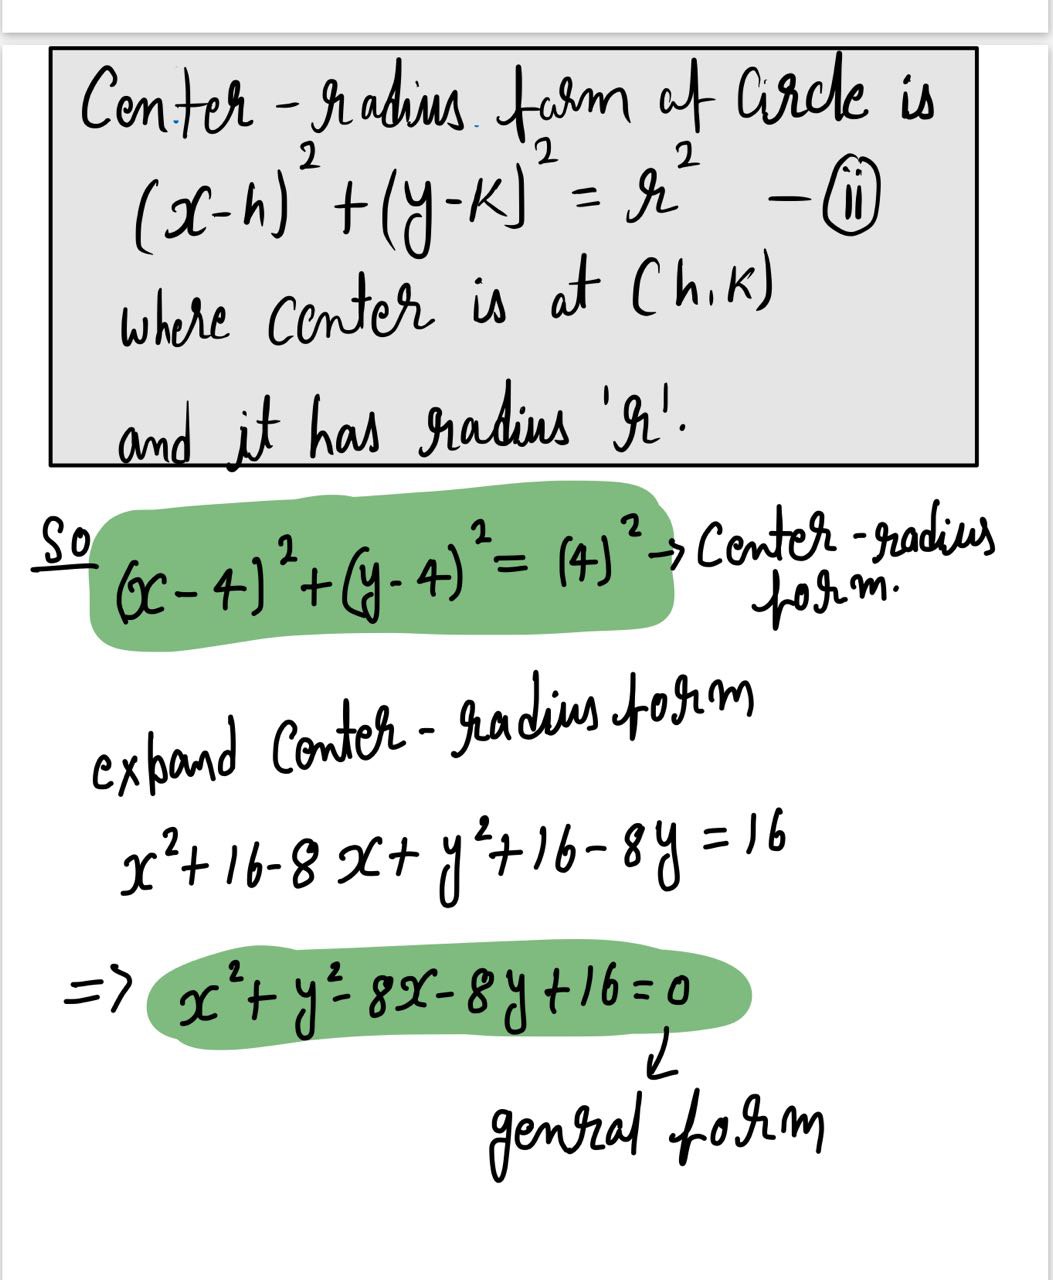 Center - radius form of Circle is
(x-h)² + (y-k)² = r² - (ii)
where center is at (h,k)
and it has radius 'r'.
So (x-4)² + (y-4)² = (4)² → Center - radius form.
expand Center - radius form
x² + 16 - 8x + y² + 16 - 8y = 16
=> x² + y² - 8x - 8y + 16 = 0
genral form